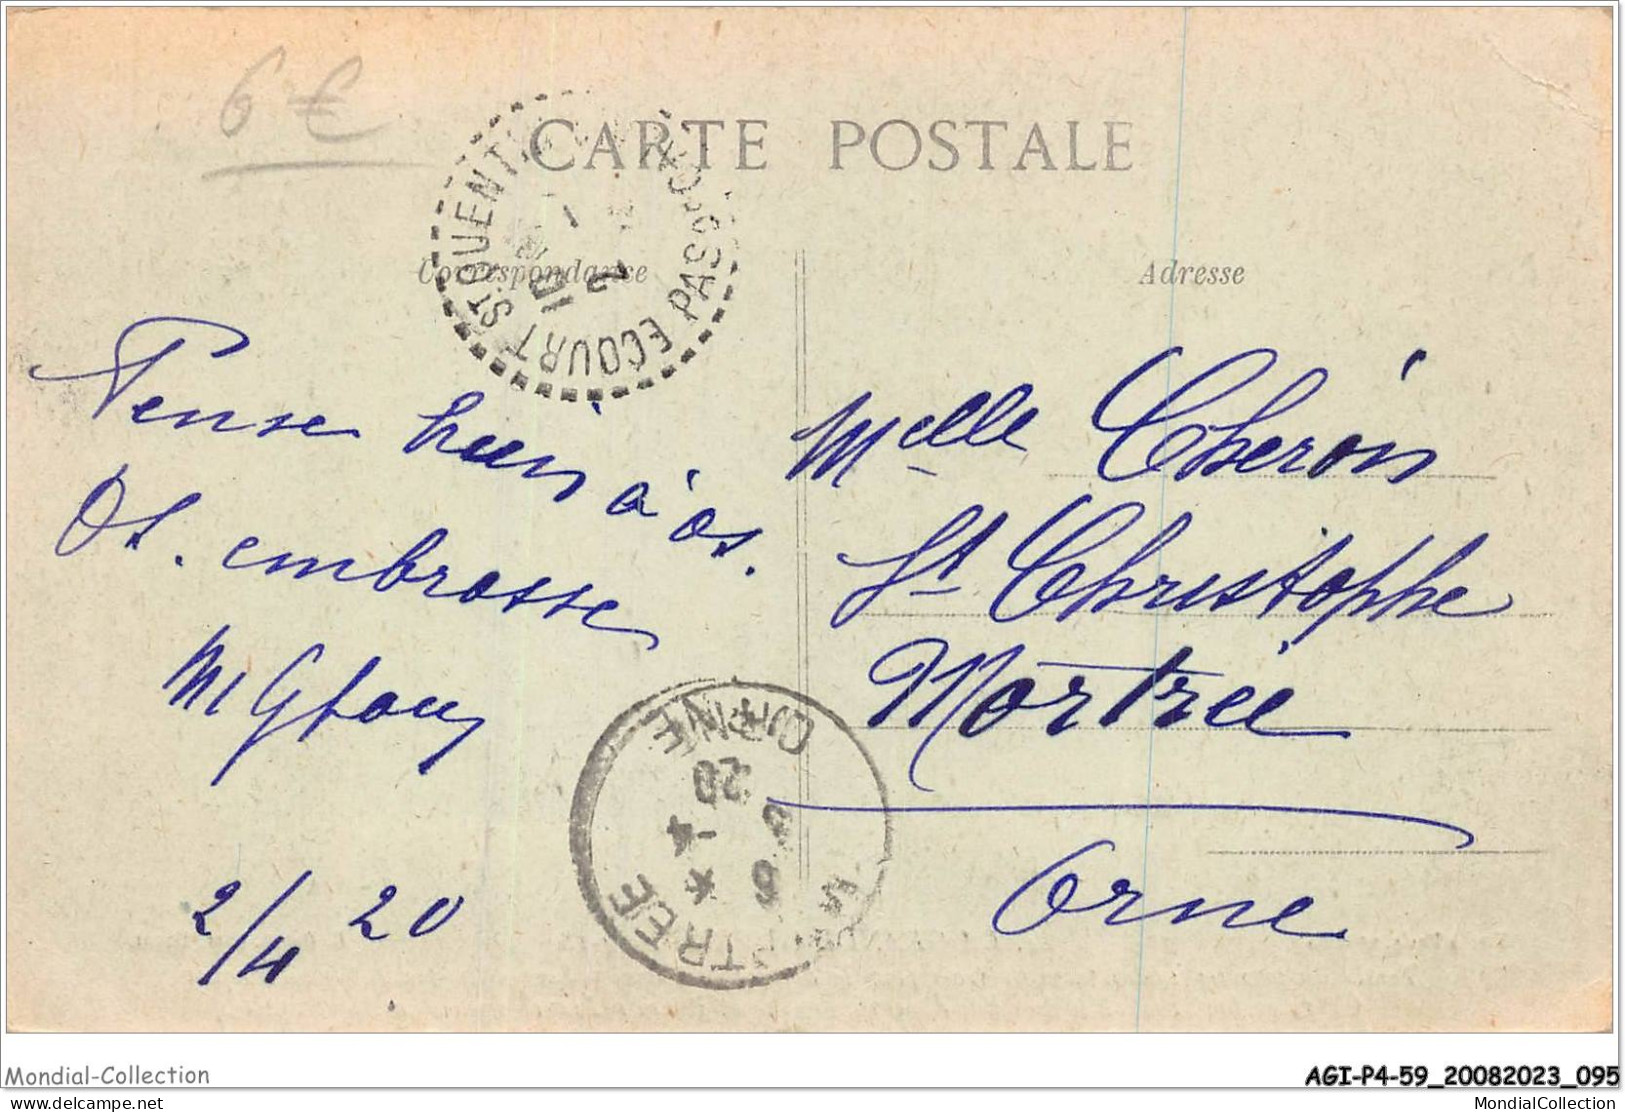 6 €
CARTE POSTALE
Correspondance
Adresse
Pense bien à vs.
Et. embrasse
2/4 20
Melle Cheron
St Christophe
Mortrée
Orne
ST QUENTIN ECOURT PAS DE CAL
MORTREE ORNE
6 * 3 -4 20
Mondial-Collection
AGI-P4-59_20082023_095
www.delcampe.net
MondialCollection